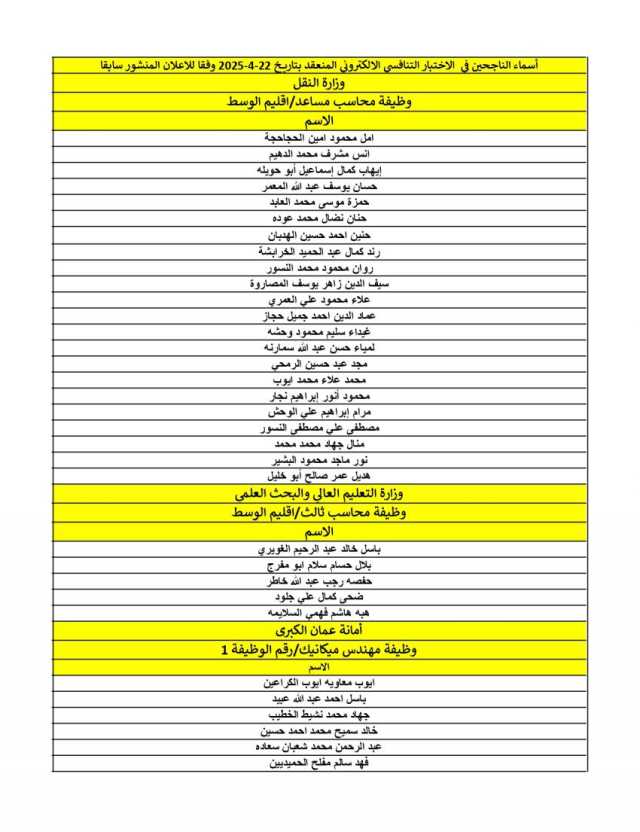 أسماء الناجحين في الاختبار التنافسي الالكتروني المنعقد بتاريخ 22-4-2025 وفقا للاعلان المنشور سابقا
وزارة النقل
وظيفة محاسب مساعد/اقليم الوسط
الاسم
امل محمود امين الحجاحجة
انس مشرف محمد الدهيم
إيهاب كمال إسماعيل أبو حويله
حسان يوسف عبد الله المعمر
حمزة موسى محمد العابد
حنان نضال محمد عوده
حنين احمد حسين الهدبان
رند كمال عبد الحميد الخرابشة
روان محمود محمد النسور
سيف الدين زاهر يوسف المصاروة
علاء محمود علي العمري
عماد الدين احمد جميل حجاز
غيداء سليم محمود وحشه
لمياء حسن عبد الله سمارنه
مجد عبد حسين الرمحي
محمد علاء محمد ايوب
محمود أنور إبراهيم نجار
مرام إبراهيم علي الوحش
مصطفى علي مصطفى النسور
منال جهاد محمد محمد
نور ماجد محمود البشير
هديل عمر صالح أبو خليل
وزارة التعليم العالي والبحث العلمي
وظيفة محاسب ثالث/اقليم الوسط
الاسم
باسل خالد عبد الرحيم الغويري
بلال حسام سلام ابو مفرح
حفصه رجب عبد الله خاطر
ضحى كمال علي جلود
هبه هاشم فهمي السلايمه
أمانة عمان الكبرى
وظيفة مهندس ميكانيك/رقم الوظيفة 1
الاسم
ايوب معاويه ايوب الكراعين
باسل احمد عبد الله عبيد
جهاد محمد نشيط الخطيب
خالد سميح محمد احمد حسين
عبد الرحمن محمد شعبان سعاده
فهد سالم مفلح الحميديين